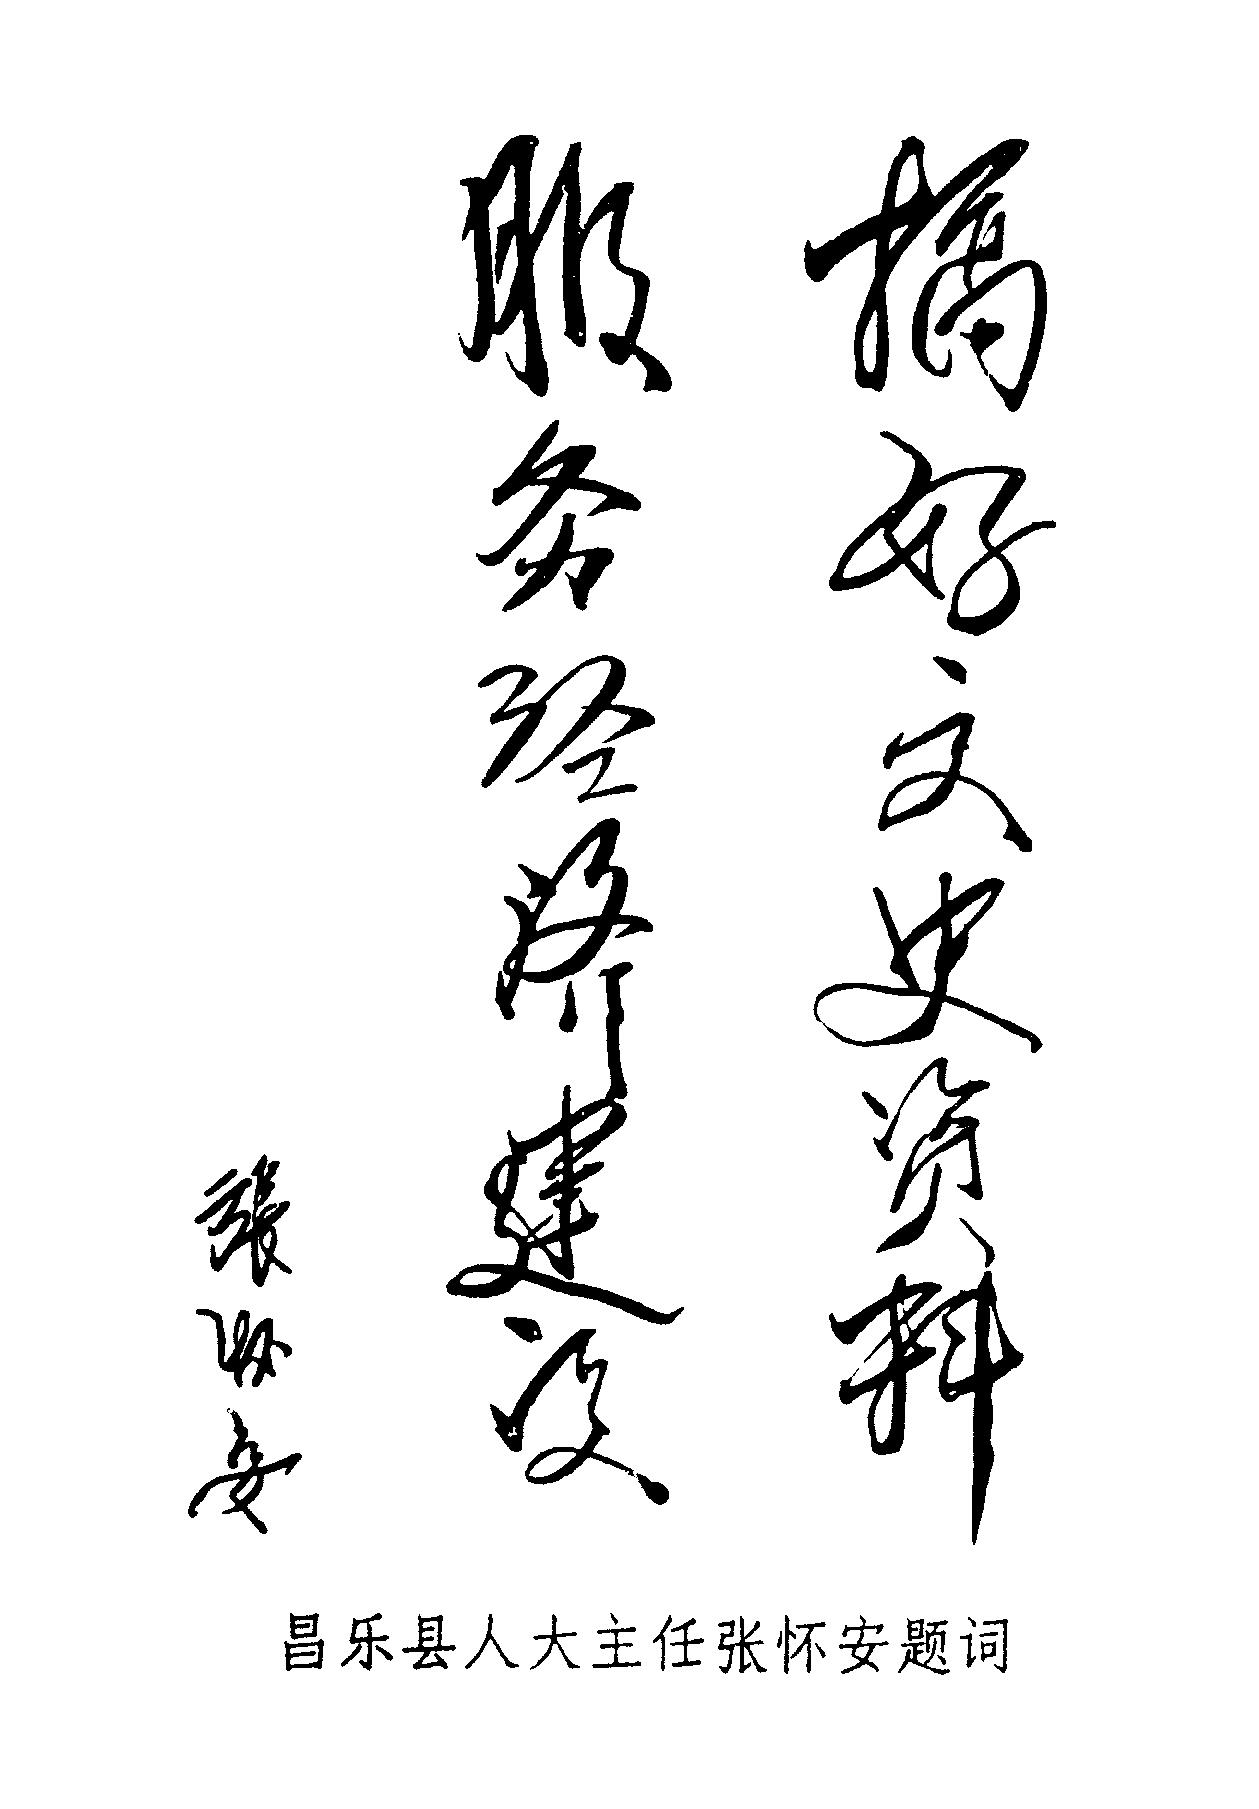 搞好文史资料
服务经济建设
张怀安
昌乐县人大主任张怀安题词